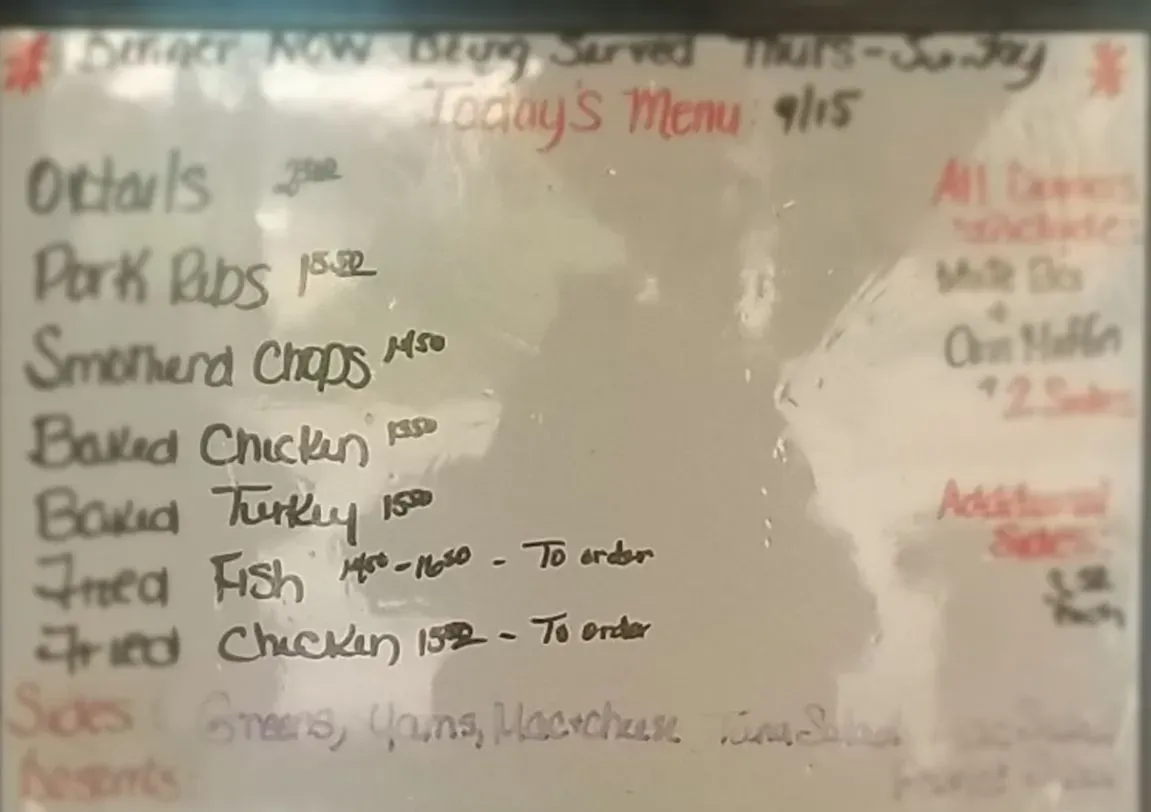 Dinner Now Being Served Thurs-Sunday
Today's Menu: 9/15
Oxtails
Pork Ribs 15.50
Smotherd Chops 14.50
Baked Chicken 13.50
Baked Turkey 15.50
Fried Fish 14.50 - 16.50 - To order
Fried Chicken 15.50 - To order
All Dinners
include:
Corn Muffin
+ 2 Sides
Additional
Sides:
Sides: Greens, Yams, Mac+cheese Tuna Salad
Desserts: